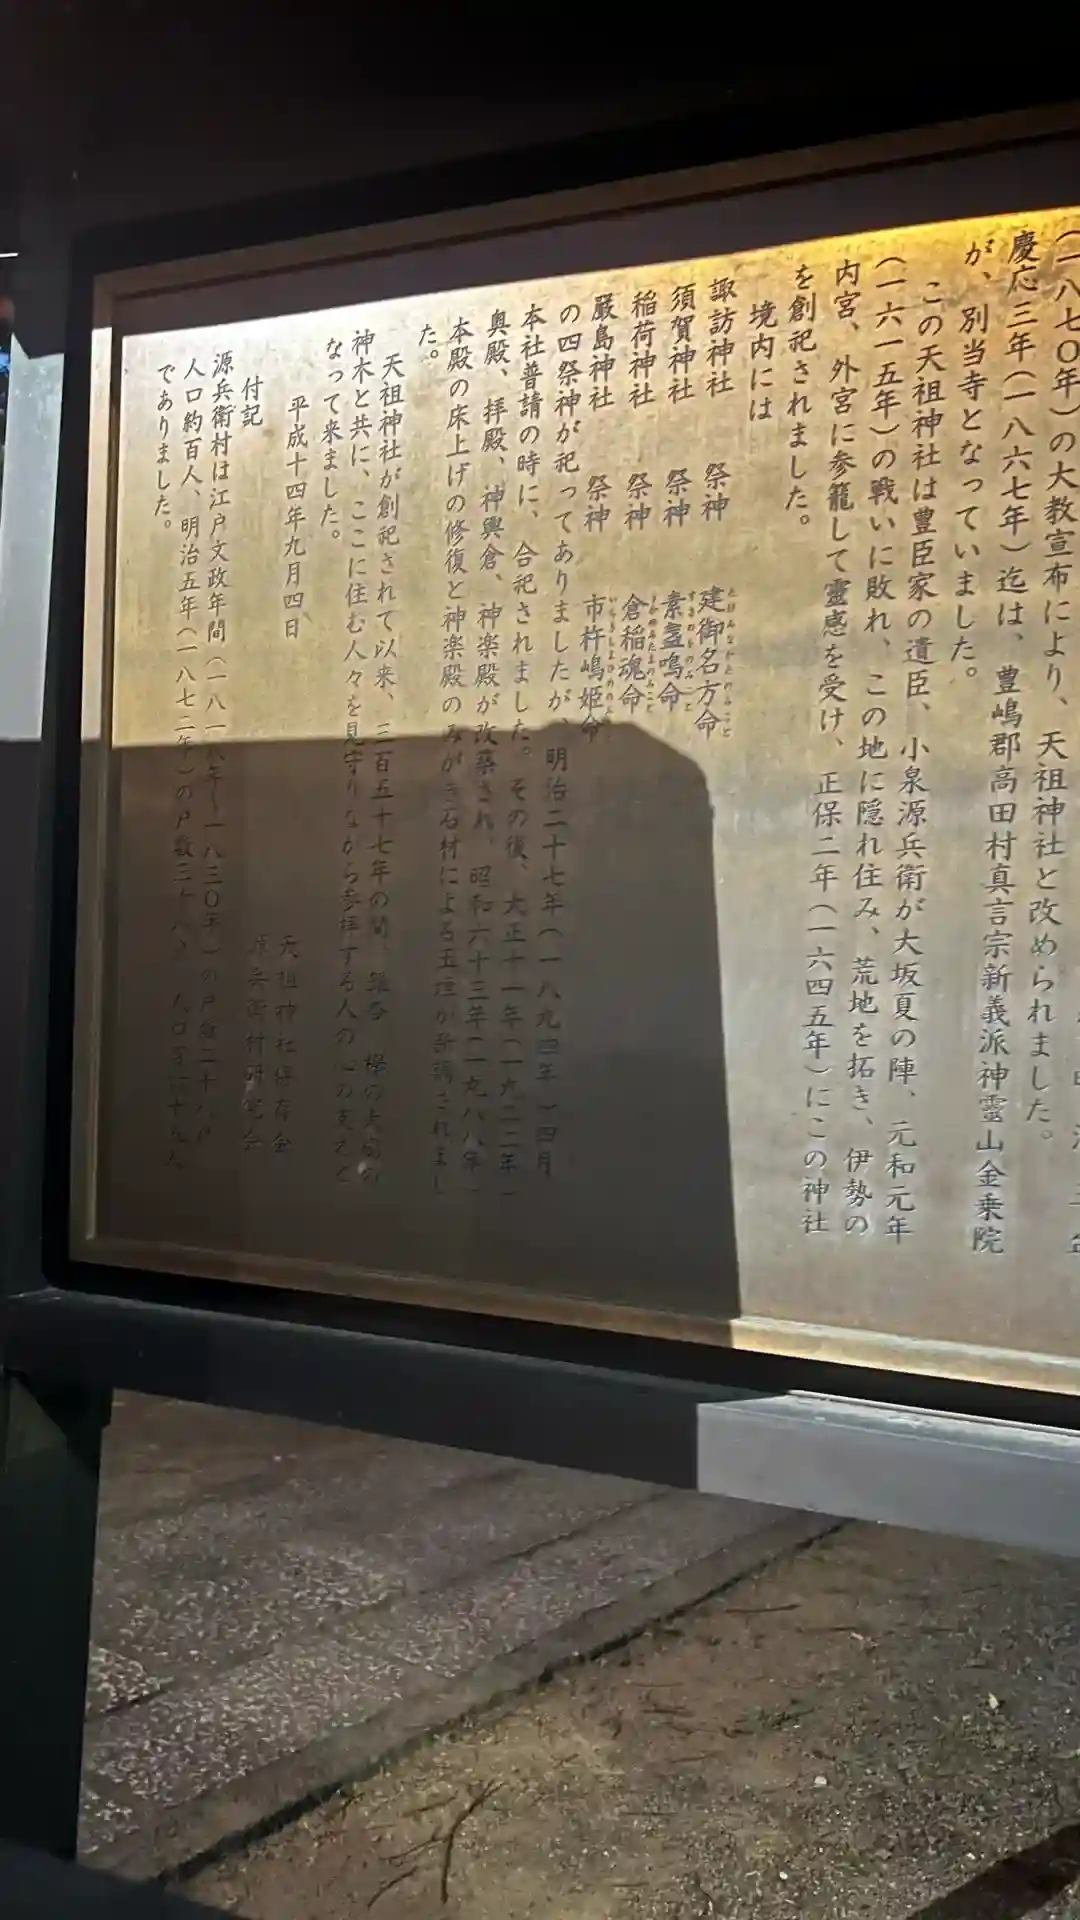 (一八七〇年)の大教宣布により、天祖神社と改められました。
慶応三年(一八六七年)迄は、豊嶋郡高田村真言宗新義派神霊山金乗院
が、別当寺となっていました。
この天祖神社は豊臣家の遺臣、小泉源兵衛が大坂夏の陣、元和元年
(一六一五年)の戦いに敗れ、この地に隠れ住み、荒地を拓き、伊勢の
内宮、外宮に参籠して霊感を受け、正保二年(一六四五年)にこの神社
を創祀されました。
境内には
諏訪神社 祭神 建御名方命
須賀神社 祭神 素盞嗚命
稲荷神社 祭神 倉稲魂命
嚴島神社 祭神 市杵嶋姫命
の四祭神が祀ってありましたが、明治二十七年(一八九四年)四月
本社普請の時に、合祀されました。その後、大正十一年(一九二二年)
奥殿、拝殿、神輿倉、神楽殿が改築され、昭和六十三年(一九八八年)
本殿の床上げの修復と神楽殿のみがき石材による玉垣が新調されまし
た。
天祖神社が創祀されて以来、三百五十七年の間、銀杏 欅の大樹の
神木と共に、ここに住む人々を見守りながら参拝する人の心の支えと
なって来ました。
平成十四年九月四日
天祖神社保存会
源兵衛村研究会
付記
源兵衛村は江戸文政年間(一八一八年〜一八三〇年)の戸数二十八戸
人口約百人、明治五年(一八七二年)の戸数三十八戸 人口
でありました。